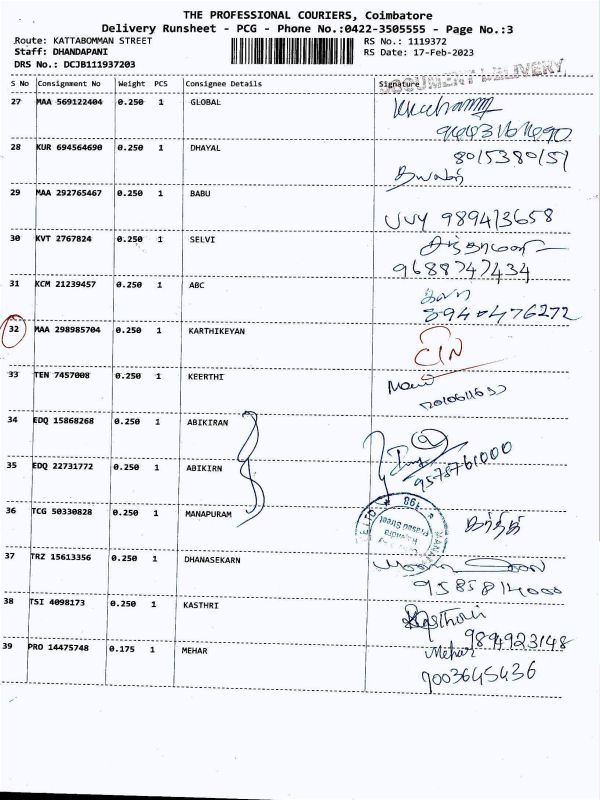 THE PROFESSIONAL COURIERS, Coimbatore
Delivery Runsheet - PCG - Phone No.:0422-3505555 - Page No.:3
Route: KATTABOMMAN STREET
RS No.: 1119372
Staff: DHANDAPANI
RS Date: 17-Feb-2023
DRS No.: DCJB111937203
DOCUMENT DELIVERY
S No Consignment No Weight PCS Consignee Details Signature
27 MAA 569122404 0.250 1 GLOBAL
28 KUR 694564690 0.250 1 DHAYAL 8015380151
29 MAA 292765467 0.250 1 BABU
30 KVT 2767824 0.250 1 SELVI
9688747434
31 KCM 21239457 0.250 1 ABC
32 MAA 298985704 0.250 1 KARTHIKEYAN
33 TEN 7457008 0.250 1 KEERTHI
34 EDQ 15868268 0.250 1 ABIKIRAN
35 EDQ 22731772 0.250 1 ABIKIRN 9578761000
36 TCG 50330828 0.250 1 MANAPURAM
37 TRZ 15613356 0.250 1 DHANASEKARN
9585814000
38 TSI 4098173 0.250 1 KASTHRI Kasthuri
9894923148
39 PRO 14475748 0.175 1 MEHAR Mehar
7003645436